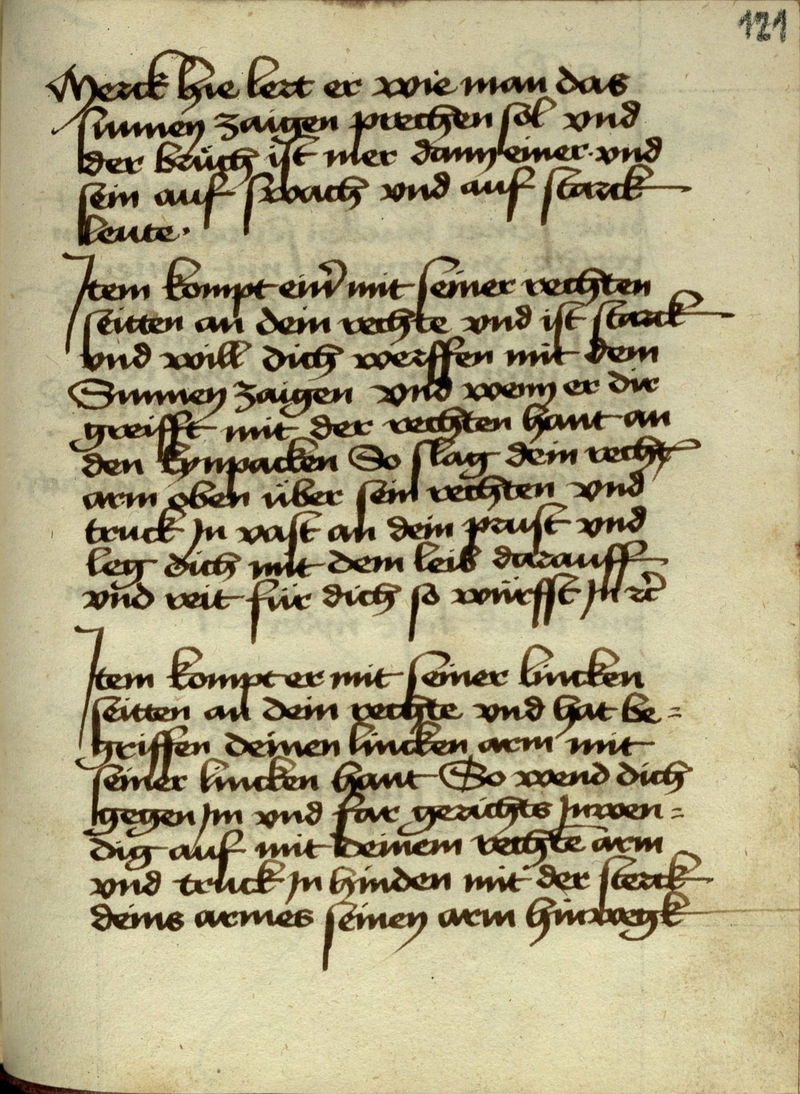 121
Merck hie lert er wie man das
sunnen zaigen prechen sol vnd
der brüch ist mer dann einer vnd
sein auf swach vnd auf starck
leute ·
Item kompt einer mit seiner rechten
seitten an dein rechte vnd ist starck
vnd will dich werffen mit dem
Sunnen zaigen vnd wenn er dir
greifft mit der rechten hant an
den kynpacken So slag dein recht
arm oben über sein rechten vnd
truck In vast an dein prust vnd
leg dich mit dem leib darauff
vnd reit für dich so würfft In rc̄
Item kompt er mit seiner lincken
seitten an dein rechte vnd hat be=
griffen deinen lincken arm mit
seiner lincken hant So wend dich
gegen Im vnd far gerichts Inwen=
dig auf mit deinem rechtē arm
vnd truck In hinden mit der sterck
deins armes seinen arm hinwegk